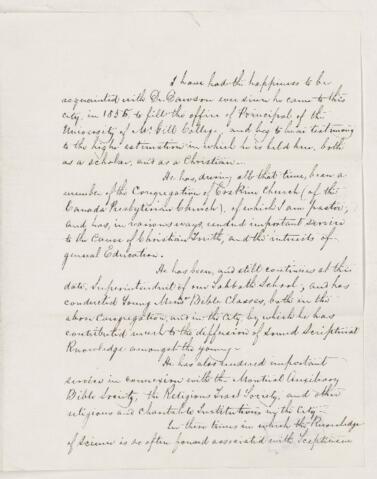 I have had the happiness to be
acquainted with Dr. Dawson ever since he came to this
city, in 1855, to fill the office of Principal of the
University of McGill College, and beg to bear testimony
to the high estimation in which he is held here, both
as a scholar, and as a Christian.
He has, during all that time, been a
member of the Congregation of Erskine Church (of the
Canada Presbyterian Church), of which I am pastor,
and has, in various ways, rendered important service
to the Cause of Christian Truth, and the interests of
general Education.
He has been, and still continues at this
date, Superintendent of our Sabbath School; and has
conducted Young Mens' Bible Classes, both in the
above Congregation, and in the City, by which he has
contributed much to the diffusion of sound Scriptural
Knowledge amongst the young.
He has also rendered important
service in connexion with the Montreal Auxiliary
Bible Society, the Religious Tract Society, and other
religious and charitable Institutions in the City.
In these times in which the Knowledge
of Science is so often found associated with Scepticism